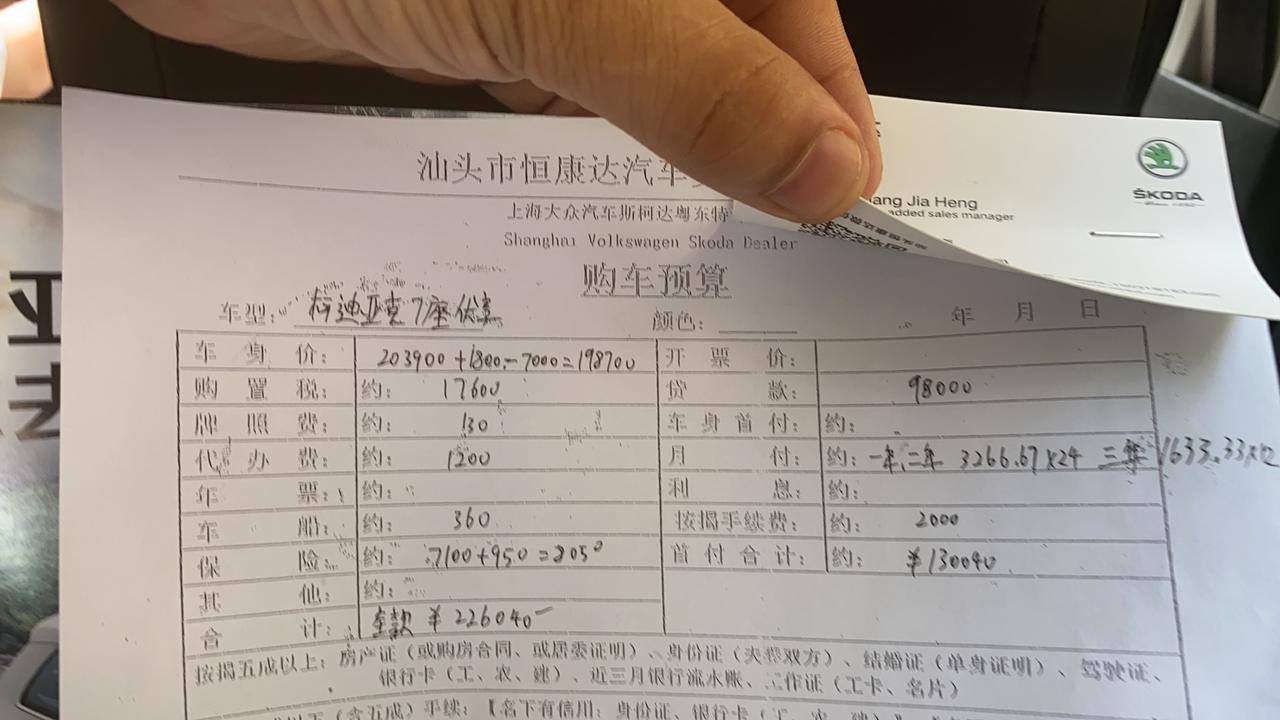 汕头市恒康达汽车
上海大众汽车斯柯达粤东特
Shanghai Volkswagen Skoda Dealer
ang Jia Heng
added sales manager
ŠKODA
购车预算
车型: 柯迪亚克7座优享 颜色: 年 月 日
车身价: 203900+1800-7000=198700 开票价:
购置税: 约: 17600 贷款: 98000
牌照费: 约: 130 车身首付: 约:
代办费: 约: 1200 月付: 约: 一年、二年 3266.67×24 三年 1633.33×12
年票: 约: 利息: 约:
车船: 约: 360 按揭手续费: 约: 2000
保险: 约: 7100+950=8050 首付合计: 约: ¥130040
其他: 约:
合计: 全款 ¥226040-
按揭五成以上: 房产证（或购房合同、或居委证明）、身份证（夫妻双方）、结婚证（单身证明）、驾驶证、
银行卡（工、农、建）、近三月银行流水账、工作证（工卡、名片）
（含五成）手续:【名下有信用: 身份证、银行卡（工、农、建）
亚